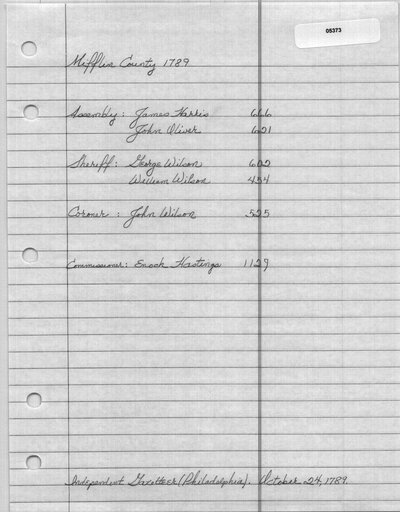 05373
Mifflin County 1789
Assembly: James Harris 666
John Oliver 621
Sheriff: George Wilson 602
William Wilson 454
Coroner: John Wilson 525
Commissioner: Enoch Hastings 1129
Independent Gazetteer (Philadelphia). October 24, 1789.